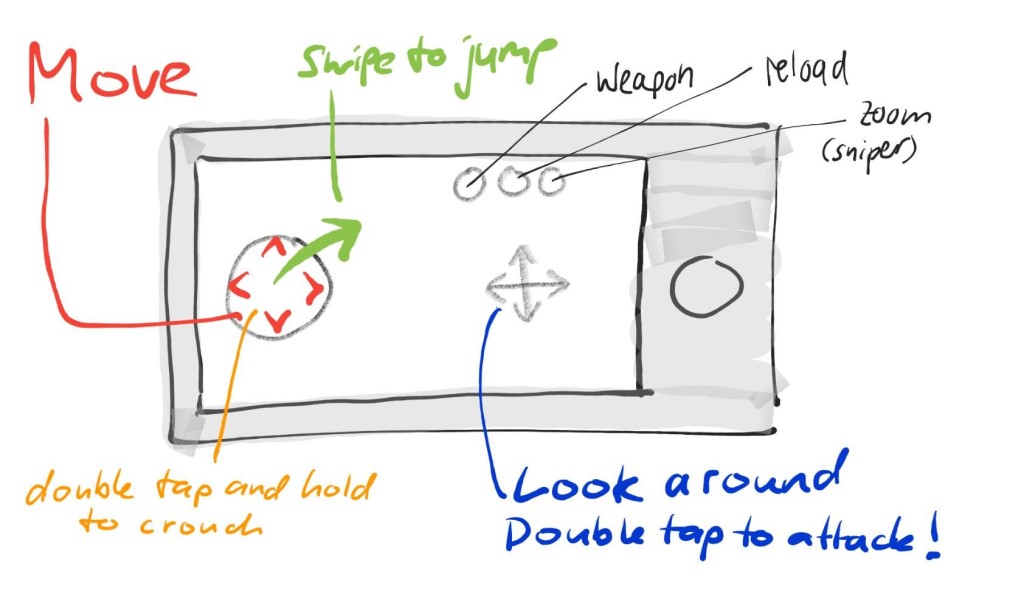 Move
Swipe to jump
Weapon
reload
Zoom
(sniper)
double tap and hold
to crouch
Look around
Double tap to attack!